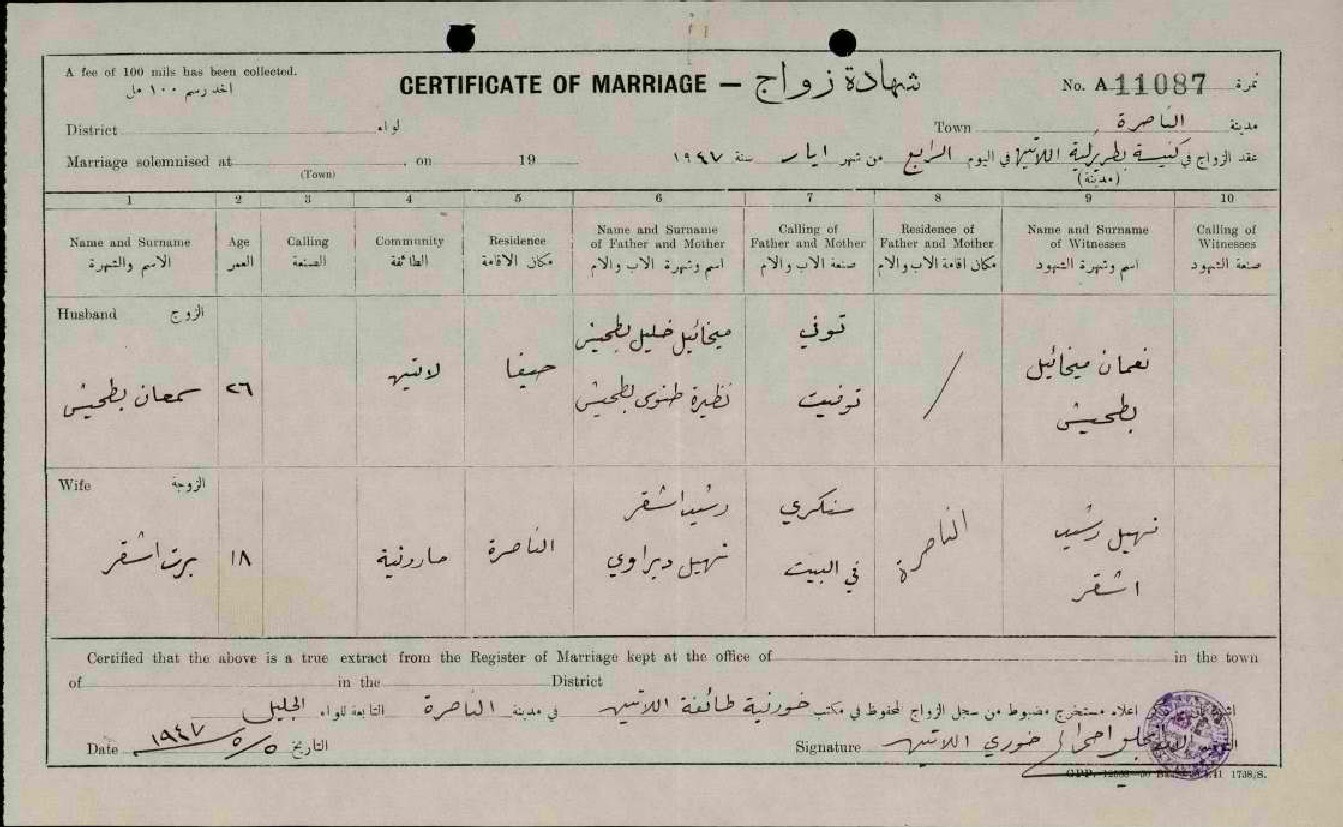 A fee of 100 mils has been collected.
اخذ رسم ١٠٠ مل
CERTIFICATE OF MARRIAGE — شهادة زواج
No. A 11087 نمرة
District لواء
Town الناصرة مدينة
Marriage solemnised at on 19
(Town)
عقد الزواج في كنيسة بطريركية اللاتين في اليوم الرابع من شهر ايار سنة ١٩٤٧
(مدينة)
1 2 3 4 5 6 7 8 9 10
Name and Surname Age Calling Community Residence Name and Surname of Father and Mother Calling of Father and Mother Residence of Father and Mother Name and Surname of Witnesses Calling of Witnesses
الاسم والشهرة العمر الصنعة الطائفة مكان الاقامة اسم وشهرة الاب والام صنعة الاب والام مكان اقامة الاب والام اسم وشهرة الشهود صنعة الشهود
Husband الزوج
سمعان بطحيش ٢٦ لاتين حيفا
ميخائيل خليل بطحيش توفي
نظيرة طنوس بطحيش توفيت
نعمان ميخائيل
بطحيش
Wife الزوجة
برت اشقر ١٨ مارونية الناصرة
رشيد اشقر سنكري
نهيل ديراوي في البيت
الناصرة
نهيل رشيد
اشقر
Certified that the above is a true extract from the Register of Marriage kept at the office of in the town
of in the District
اعلاه مستخرج مضبوط من سجل الزواج المحفوظ في مكتب خورنية طائفة اللاتين في مدينة الناصرة التابعة للواء الجليل
Date ٥/٥ ١٩٤٧ التاريخ
Signature خوري اللاتين
1798/S.